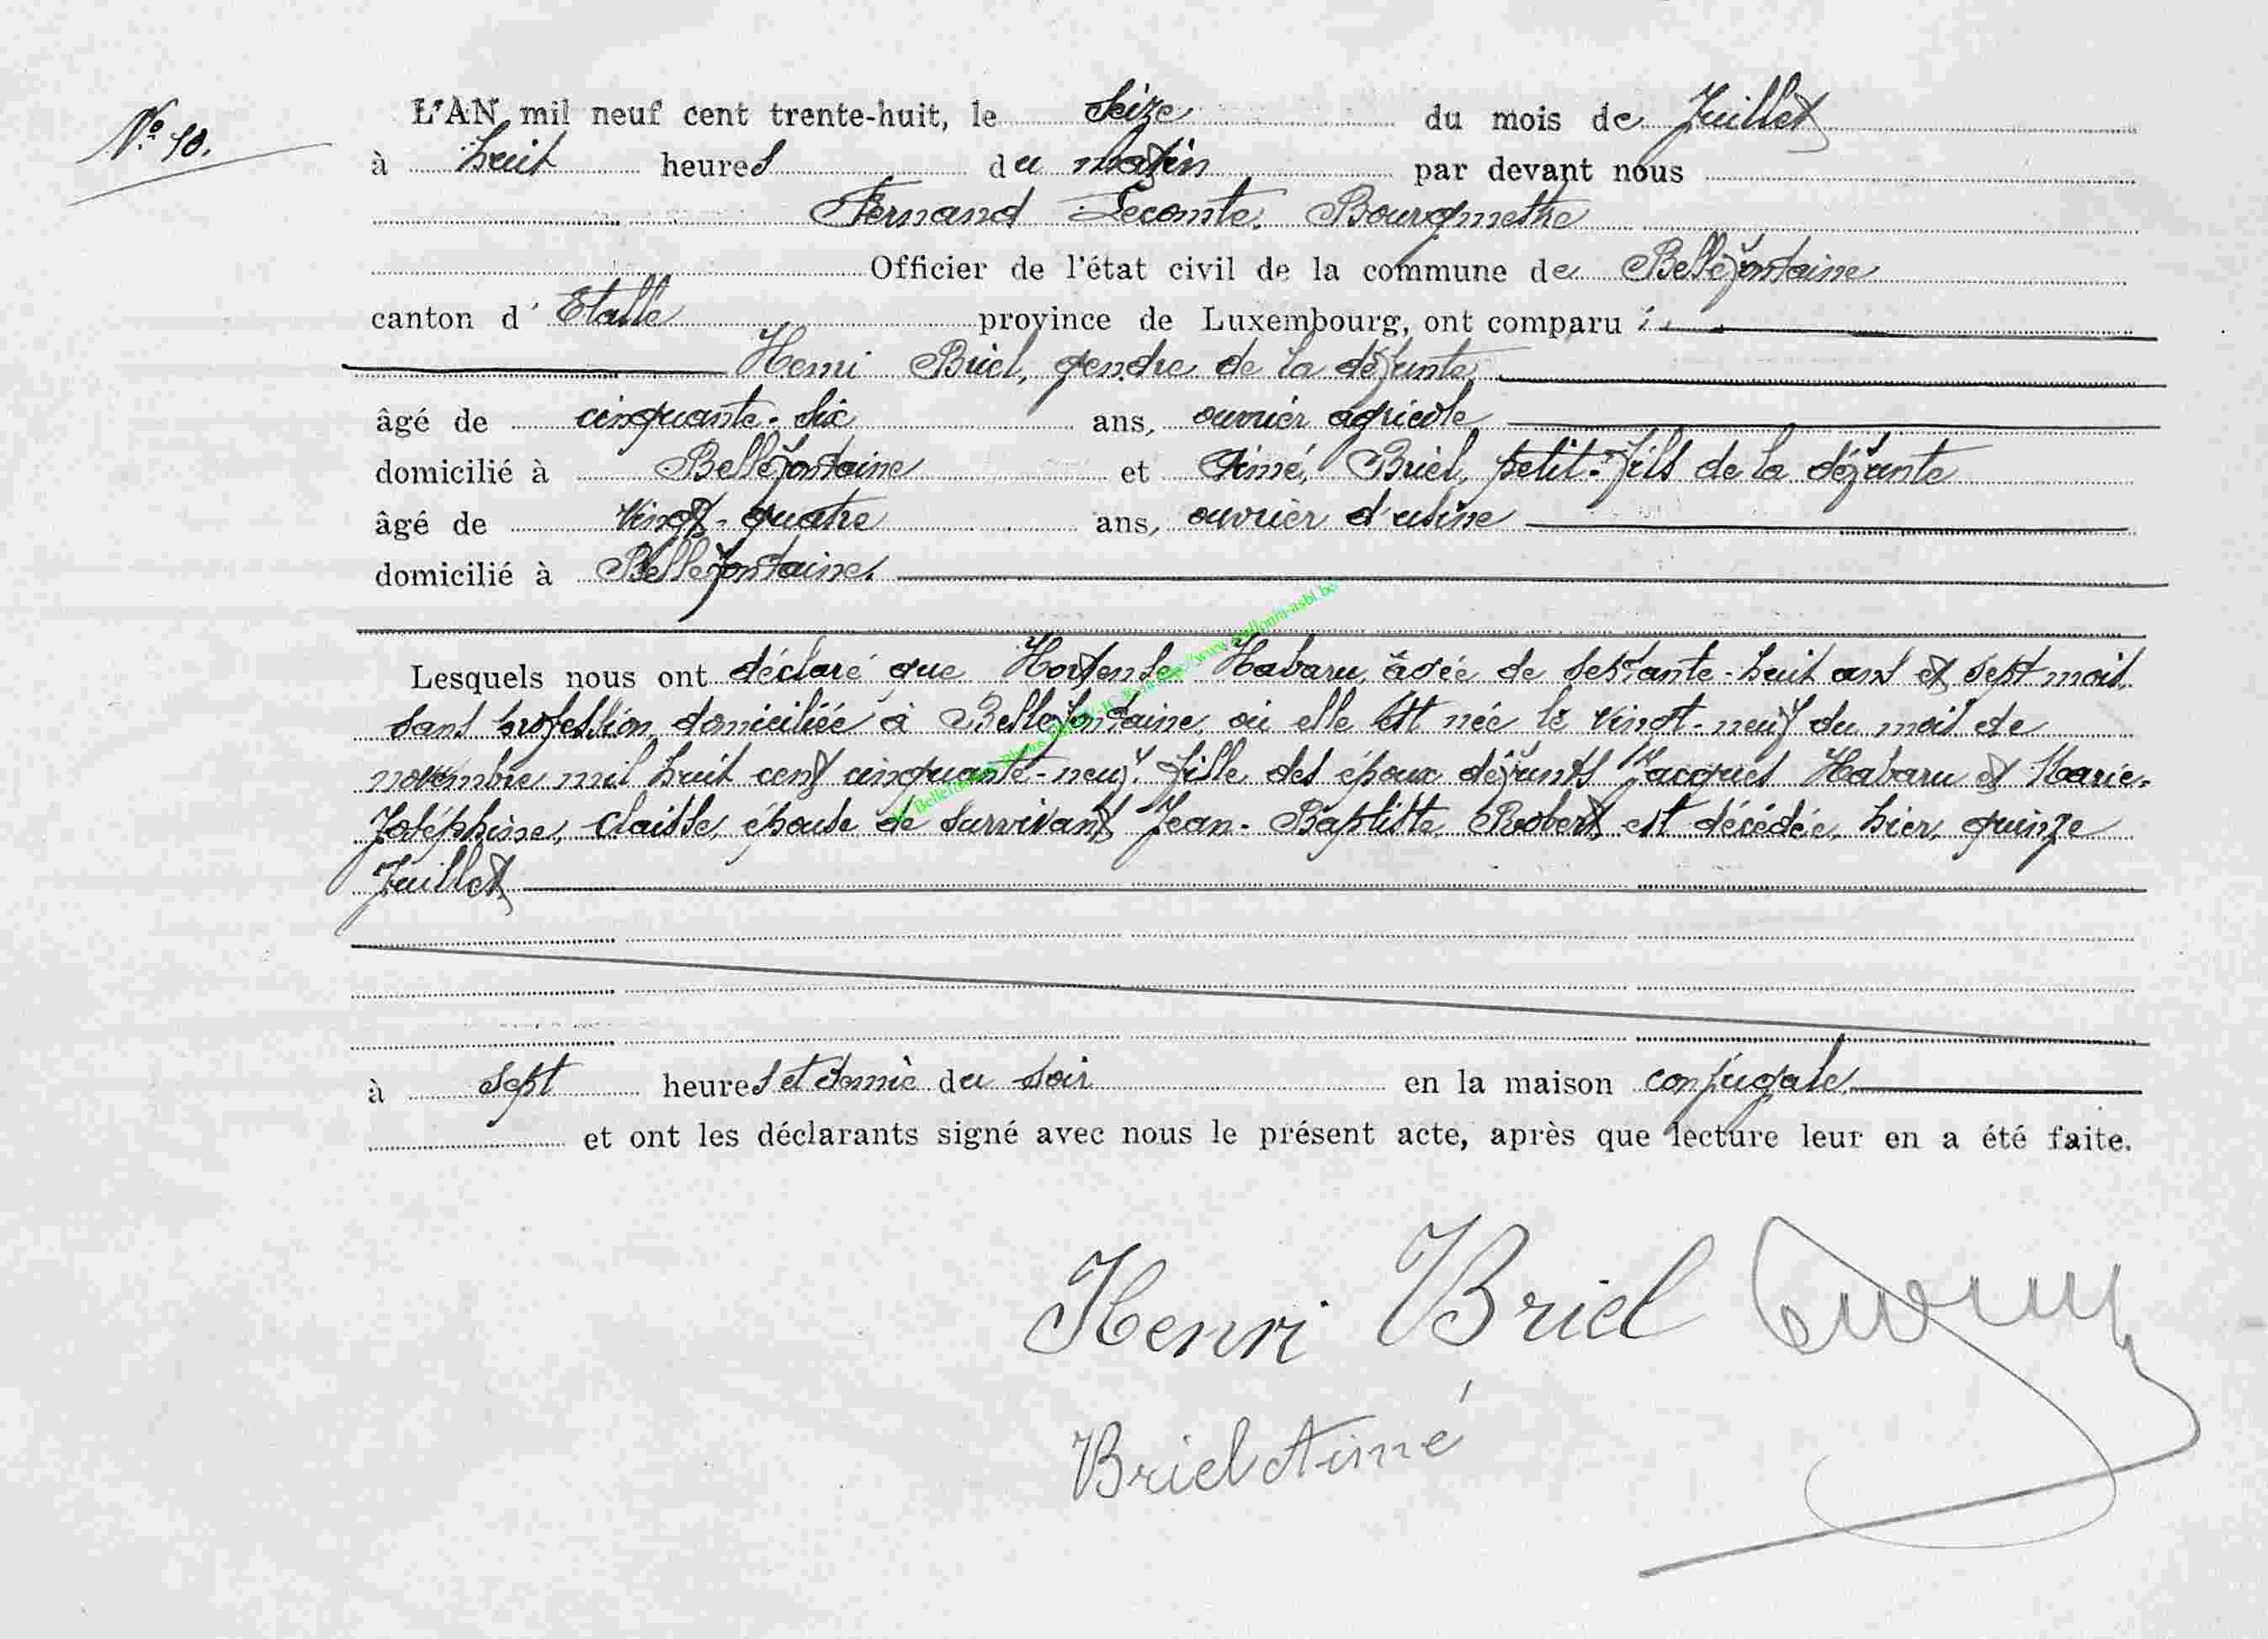 N° 10.
L'AN mil neuf cent trente-huit, le seize du mois de Juillet
à huit heures du matin par devant nous
Fernand Lecomte, Bourgmestre
Officier de l'état civil de la commune de Bellefontaine
canton d' Etalle province de Luxembourg, ont comparu :
Henri Briel, gendre de la défunte,
âgé de cinquante-six ans, ouvrier agricole
domicilié à Bellefontaine et Aimé, Briel, petit-fils de la défunte
âgé de vingt-quatre ans, ouvrier d'usine
domicilié à Bellefontaine.
Lesquels nous ont déclaré que Hortense Habaru, âgée de septante-huit ans et sept mois,
sans profession, domiciliée à Bellefontaine, où elle est née le vingt-neuf du mois de
novembre mil huit cent cinquante-neuf, fille des époux défunts Jacques Habaru et Marie-
Joséphine, Claisse, épouse de survivant Jean-Baptiste Robert est décédée, hier, quinze
Juillet
à sept heures et demie du soir en la maison conjugale,
et ont les déclarants signé avec nous le présent acte, après que lecture leur en a été faite.
Henri Briel
Briel Aimé